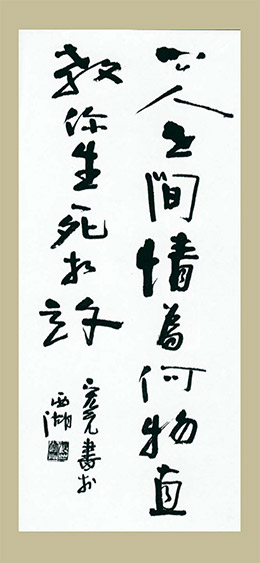 人世間情為何物直
教你生死相許
書於
西湖